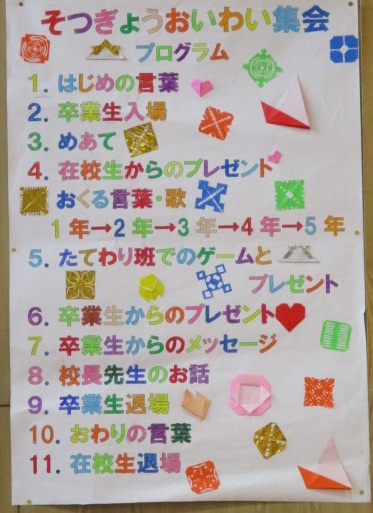 そつぎょうおいわい集会
プログラム
1. はじめの言葉
2. 卒業生入場
3. めあて
4. 在校生からのプレゼント
おくる言葉・歌
1年→2年→3年→4年→5年
5. たてわり班でのゲームと
プレゼント
6. 卒業生からのプレゼント
7. 卒業生からのメッセージ
8. 校長先生のお話
9. 卒業生退場
10. おわりの言葉
11. 在校生退場